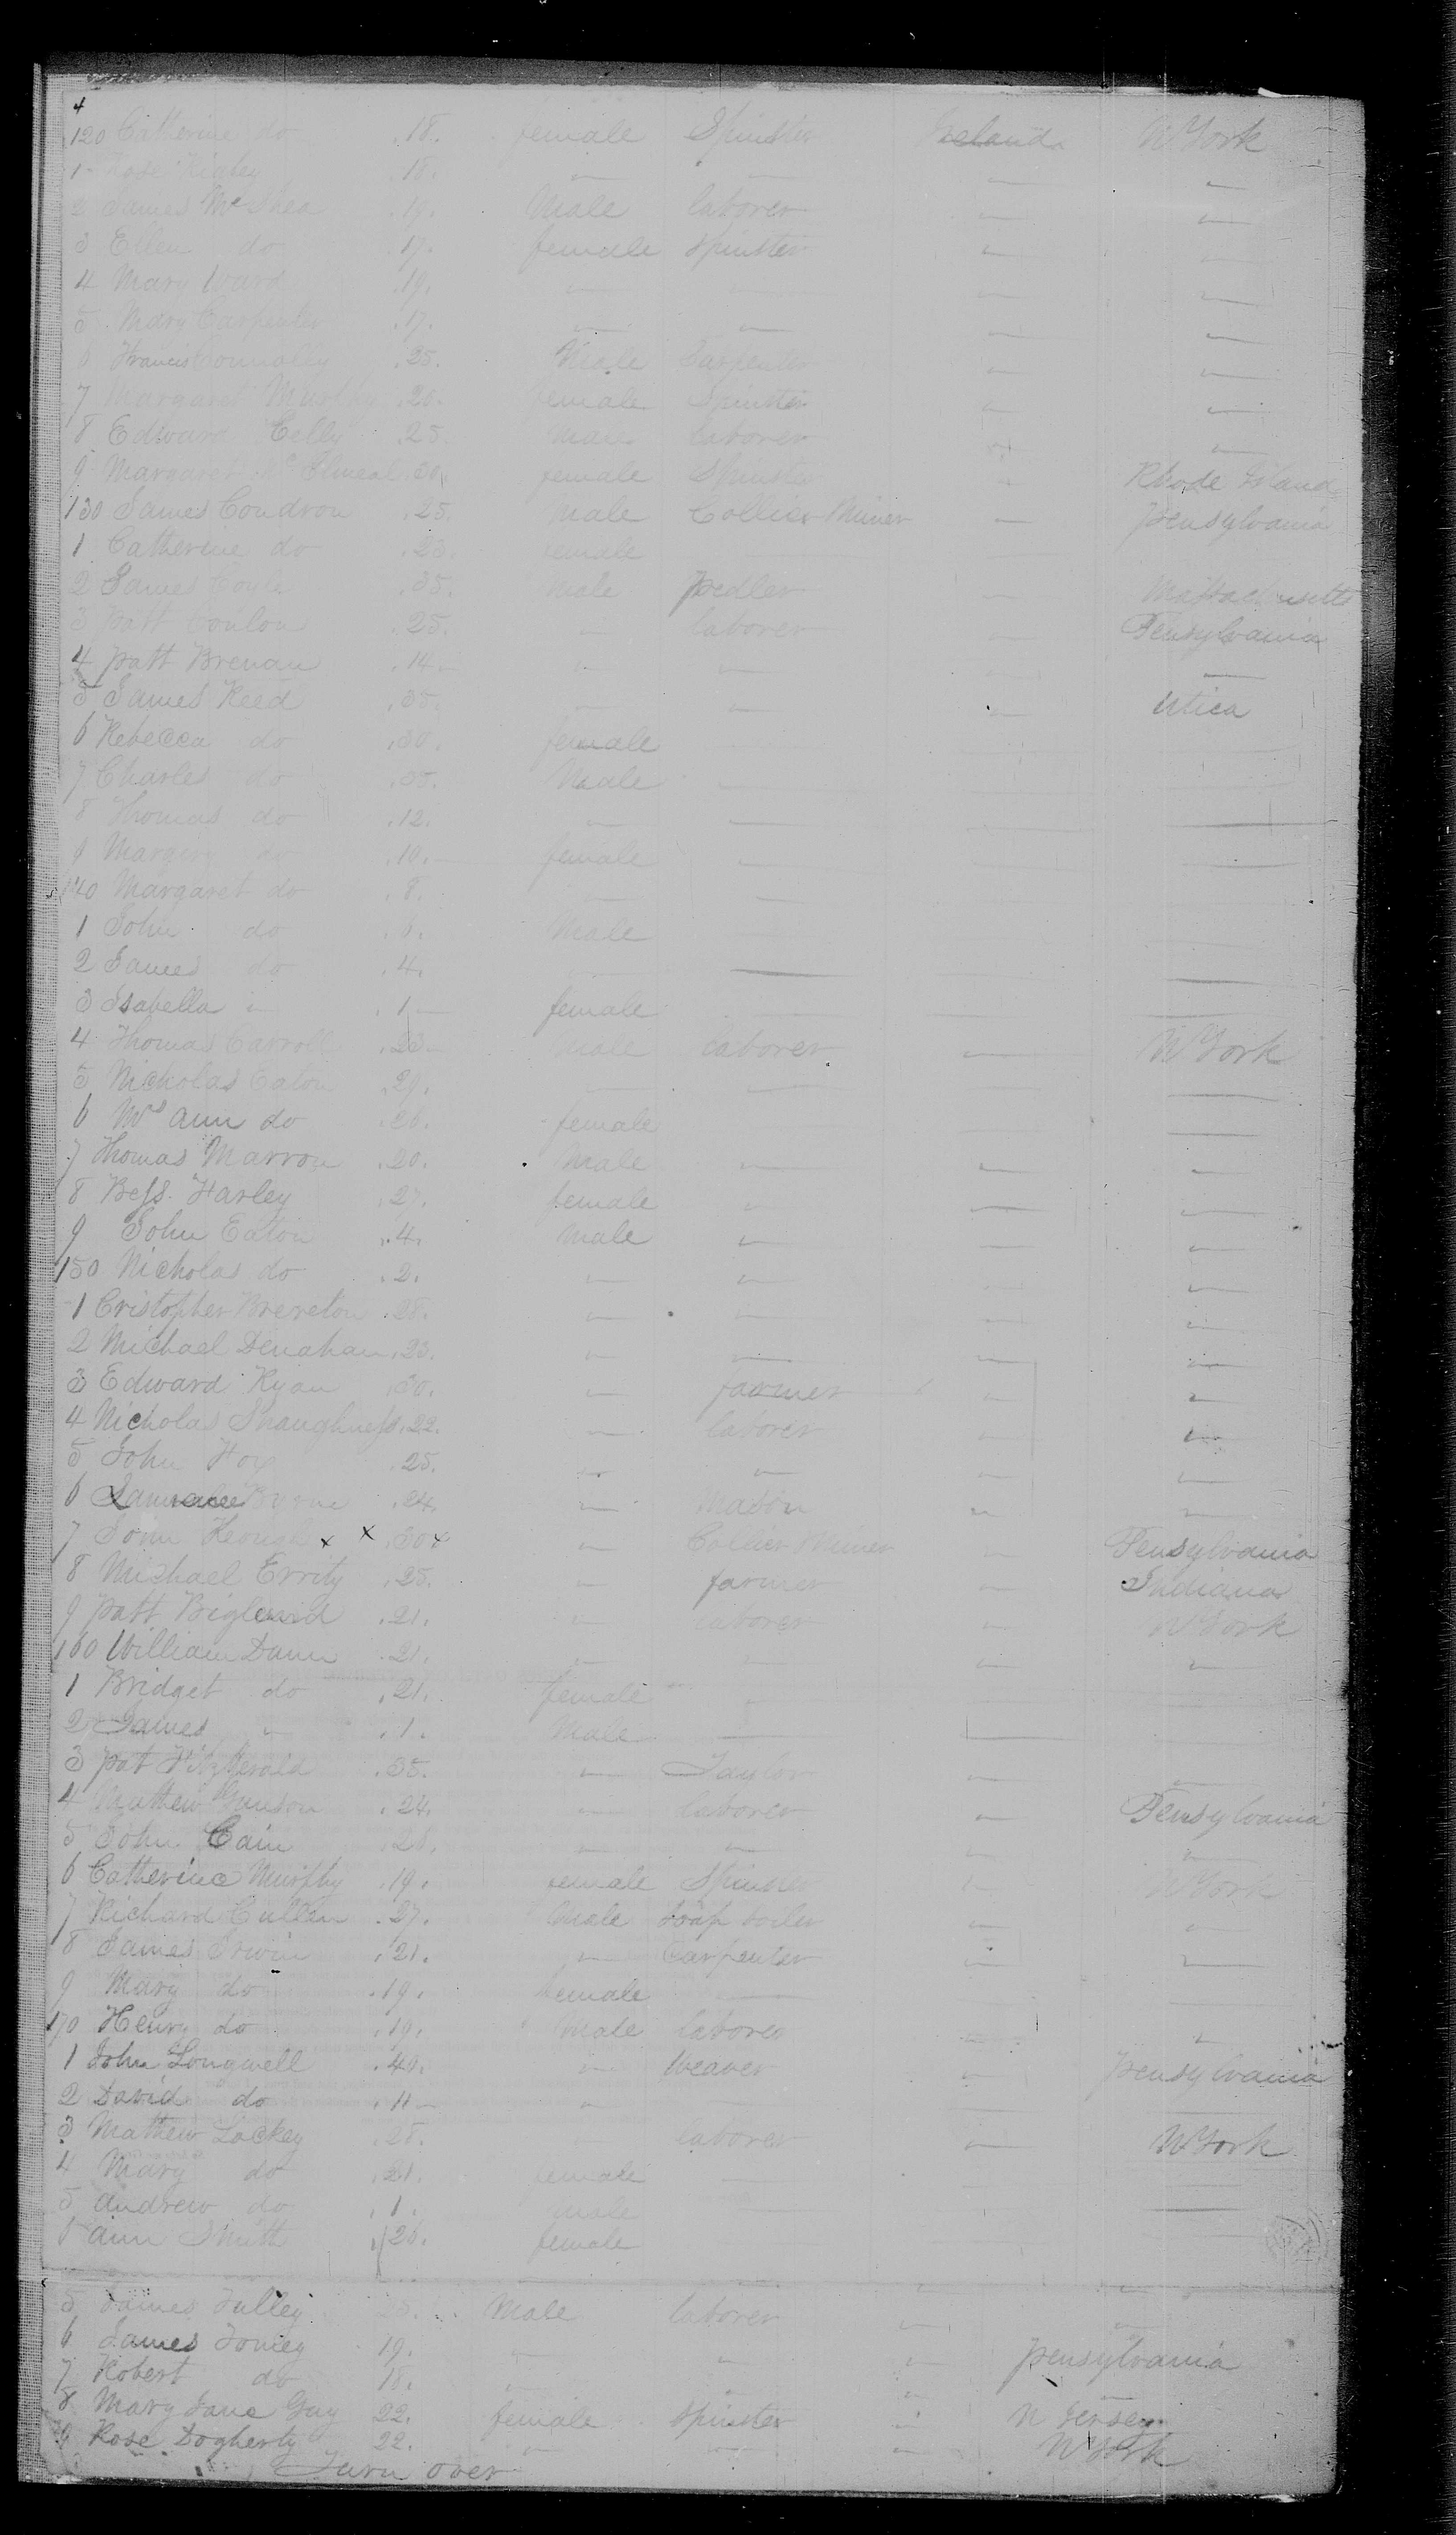 4
120 Catherine do .18. female Spinster Ireland N York
1 Rose .18. — — — —
2 James McShea .19. Male laborer — —
3 Ellen do .17. female spinster — —
4 Mary Ward .19. — — — —
5 Mary Carpenter .17. — — — —
6 Francis Connolly .25. Male Carpenter — —
7 Margaret Murphy .20. female Spinster — —
8 Edward Celly .25. Male laborer — —
9 Margaret female Spinster — Rhode Island
130 James Condron .25. Male Collier Miner — pensylvania
1 Catherine do .23. female
2 James Coyle .35. male pedler — Massachusetts
3 patt Conlon .25. — laborer — Pensylvania
4 patt Brenan .14. — — — —
5 James Reed .35. — — — Utica
6 Rebecca do .30. female
7 Charles do Male
8 Thomas do .12. —
9 do .10. female
140 Margaret do .8. —
1 John do .6. Male
2 James do .4. —
3 Isabella — .1 female
4 Thomas Carroll .23. male laborer — N York
5 Nicholas Eaton .29. — —
6 Mrs ann do .26. female
7 Thomas Marron .20. Male — — —
8 Bess. Harley .27. female — — —
9 John Eaton .4. male — — —
150 Nicholas do .2. — — — —
1 Cristopher Brereton .28. — — — —
2 Michael Denahan .23. — — — —
3 Edward Ryan .30. — farmer — —
4 Nicholas Shaughness .22. — laborer — —
5 John Hoy .25. — — — —
6 Lawrance Byrne .24. — Mason — —
7 John Keough x x .30 x — Collier Miner — Pensylvania
8 Michael Errity .25. — farmer — Indiana
9 patt .21. — laborer — N York
160 William Dunn .21. — — — —
1 Bridget do .21. female —
2 James — .1. Male
3 pat Fitzgerald .35. — Taylor — —
4 Mathew .24. — laborer — Pensylvania
5 John Cain .28. — — — —
6 Catherine Murphy .19. female Spinster — N York
7 Richard Cullen .27. Male soap boiler — —
8 James Erwin .21. — Carpenter — —
9 Mary do .19. female
170 Henry do .19. Male laborer — —
1 John Longwell .40. — Weaver — pensylvania
2 David do .11 —
3 Mathew Lackey .28. — laborer — N York
4 Mary do .21. female
5 andrew do .1. male
6 ann Smith .26. female
5 James Tulley Male laborer — —
6 James 19. — — — pensylvania
7 Robert do 18. — — — —
8 Mary Jane Guy 22. female spinster — N Jersey
9 Rose Dogherty 22. — — — N York
Turn over